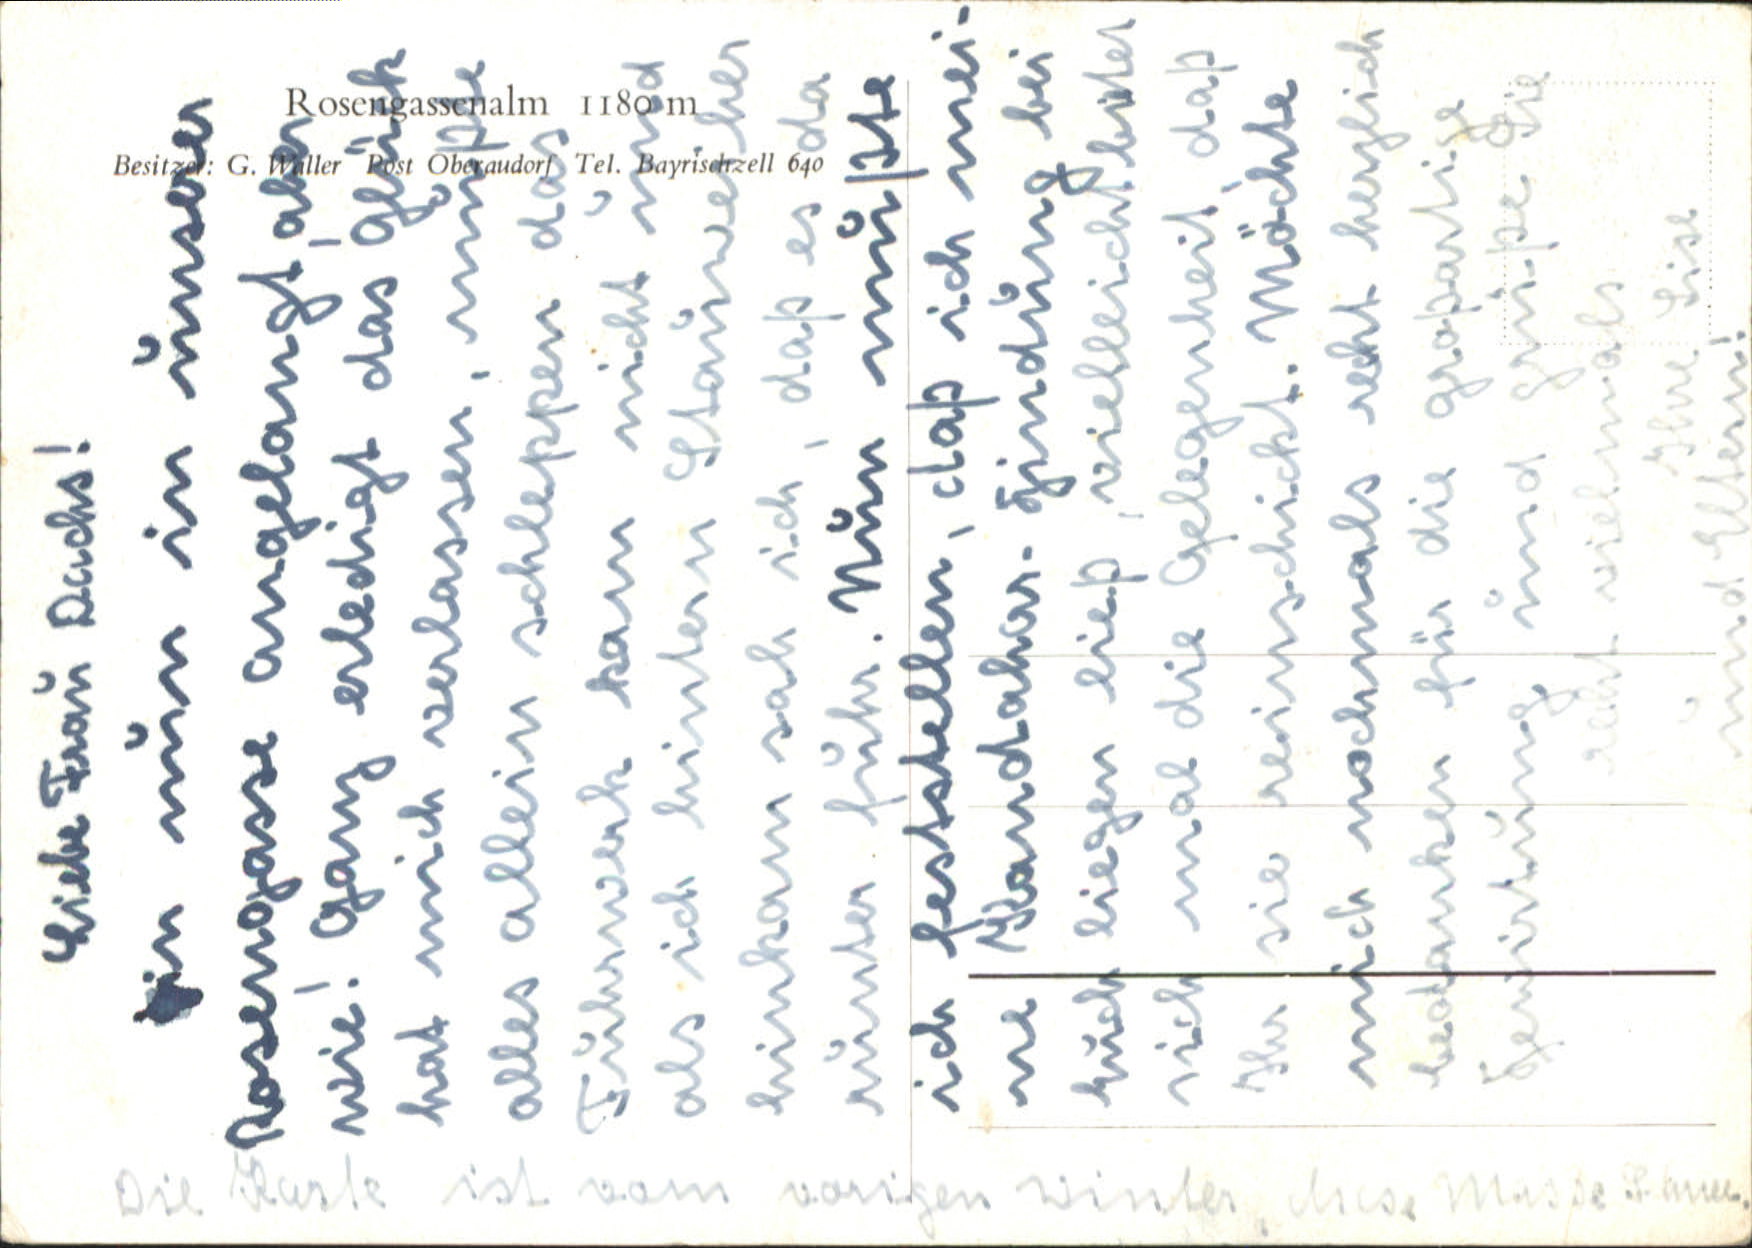 Rosengassenalm 1180 m
Besitzer: G. Waller Post Oberaudorf Tel. Bayrischzell 640
Liebe Frau Dachs!
Bin nun in unser
Rosengasse angelangt, aber
wie! Ganz erledigt, das Glück
hat mich verlassen, mußte
alles allein schleppen das
Fuhrwerk kam nicht und
als ich hinten Staüweiher
hinkam sah ich, daß es da
runter fuhr. Nun mußte
ich feststellen, daß ich mei-
ne Handahar-Zündung bei
Euch liegen ließ, vielleicht bietet
sich mal die Gelegenheit, daß
Ihr sie reinschickt. Möchte
mich nochmals recht herzlich
bedanken für die großartige
und grüße Sie
recht vielmals
Ihre Lise
und Eltern!
Die Karte ist vom vorigen Winter, diese Masse Schnee.